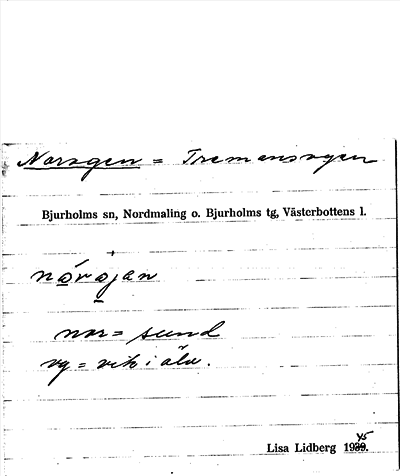 Norvgen = Tremansvgen
Bjurholms sn, Nordmaling o. Bjurholms tg, Västerbottens l.
nor = sund
vg = vik i älv.
Lisa Lidberg 1939. 45